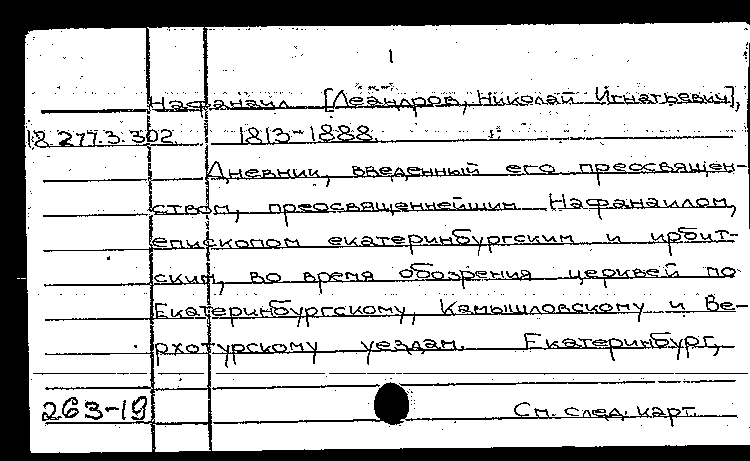 1
Нафанаил [Леандров, Николай Игнатьевич],
18.277.3.302 1813-1888
Дневник, введенный его преосвящен-
ством, преосвященнейшим Нафанаилом,
епископом екатеринбургским и ирбит-
ским, во время обозрения церквей по
Екатеринбургскому, Камышловскому и Ве-
рхотурскому уездам. Екатеринбург,
263-19 См. след. карт.